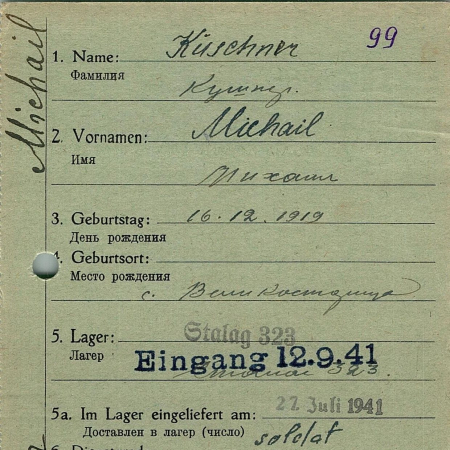 99
Michail
1. Name: Küschner
Фамилия
Кушнер.
2. Vornamen: Michail
Имя
Михаил
3. Geburtstag: 16.12.1919
День рождения
4. Geburtsort:
Место рождения
с.
5. Lager: Stalag 323
Лагер
Eingang 12.9.41
323.
5a. Im Lager eingeliefert am: 22 Juli 1941
Доставлен в лагер (число)
soldat